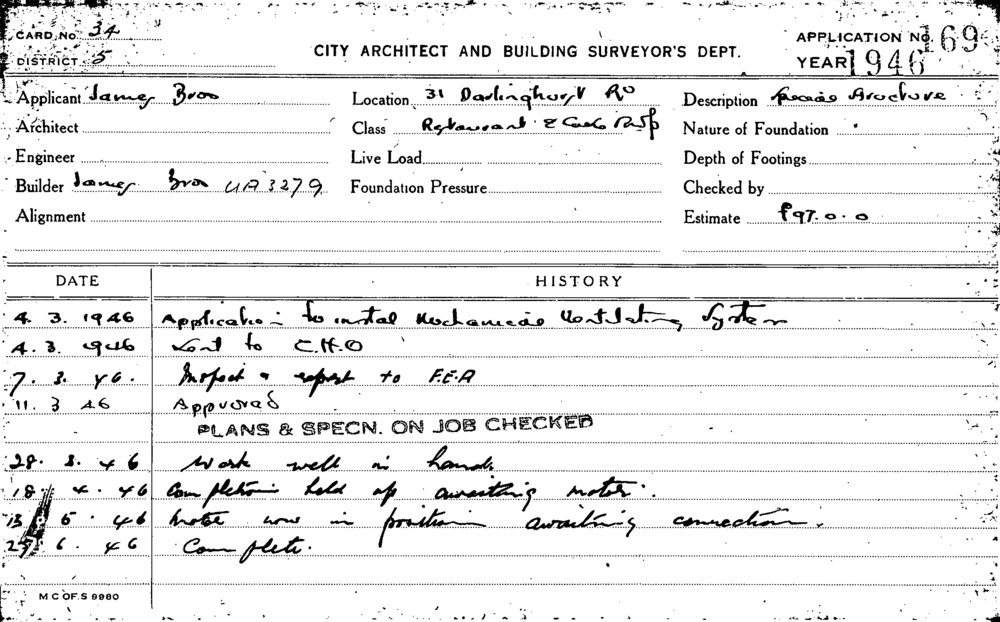 CARD No 34
DISTRICT 5
CITY ARCHITECT AND BUILDING SURVEYOR'S DEPT.
APPLICATION No. 169
YEAR 1946
Applicant James Bros
Location 31 Darlinghurst Rd
Description Special Structure
Architect
Class Restaurant &
Nature of Foundation
Engineer
Live Load
Depth of Footings
Builder James Bros UA3279
Foundation Pressure
Checked by
Alignment
Estimate £97.0.0
DATE HISTORY
4. 3. 1946 Application to instal Mechanical Ventilating System
4. 3. 1946 Sent to C.H.O
7. 3. 46. Inspect & report to F.E.A
11. 3 46 Approved
PLANS & SPECN. ON JOB CHECKED
28. 3. 46 Work well in hand.
18 4. 46 Completion held up awaiting motor.
13 5. 46 Motor now in position awaiting connection.
6. 46 Complete.
M C OF.S 9980